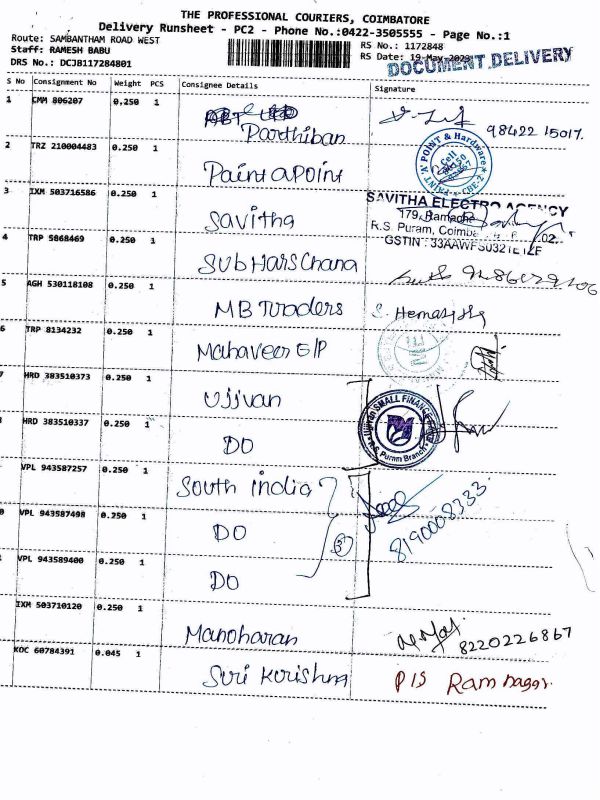 THE PROFESSIONAL COURIERS, COIMBATORE
Delivery Runsheet - PC2 - Phone No.:0422-3505555 - Page No.:1
Route: SAMBANTHAM ROAD WEST
Staff: RAMESH BABU
DRS No.: DCJB117284801
RS No.: 1172848
RS Date: 19-May-2023
DOCUMENT DELIVERY
S No Consignment No Weight PCS Consignee Details Signature
1 CMM 806207 0.250 1 Parthiban 98422 15017.
2 TRZ 210004483 0.250 1 Paint a point
PAINT 'A' POINT & Hardware
3 IXM 503716586 0.250 1 Savitha
SAVITHA ELECTRO AGENCY
179, Ramache
R.S. Puram, Coimb 02.
GSTIN : 33AAWFS0321E1ZF
4 TRP 5868469 0.250 1 Subhars Chana
5 AGH 530118108 0.250 1 MB Traders S. Hemas
6 TRP 8134232 0.250 1 Mahaveer E/P
7 HRD 383510373 0.250 1 Ujjivan
Ujjivan SMALL FINANCE
R.S. Puram Branch
HRD 383510337 0.250 1 DO
VPL 943587257 0.250 1 South india
VPL 943587498 0.250 1 DO (3) 8190008333
VPL 943589400 0.250 1 DO
IXM 503710120 0.250 1 Manoharan 8220226867
KOC 60784391 0.045 1 Suri Kurishna P/S Ram nagar.